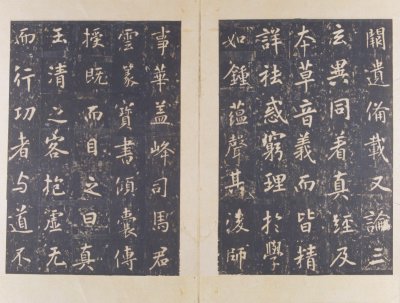 闕遺備載又論三
玄異同著真經及
本草音義而皆精
詳袪惑窮理於學
如鍾蘊聲其淩師
事華蓋峰司馬君
雲篆寶書傾囊傳
授既而目之曰真
王清之客抱虛无
而行功者与道不